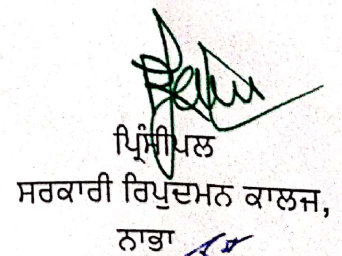 ਪ੍ਰਿੰਸੀਪਲ
ਸਰਕਾਰੀ ਰਿਪੁਦਮਨ ਕਾਲਜ,
ਨਾਭਾ